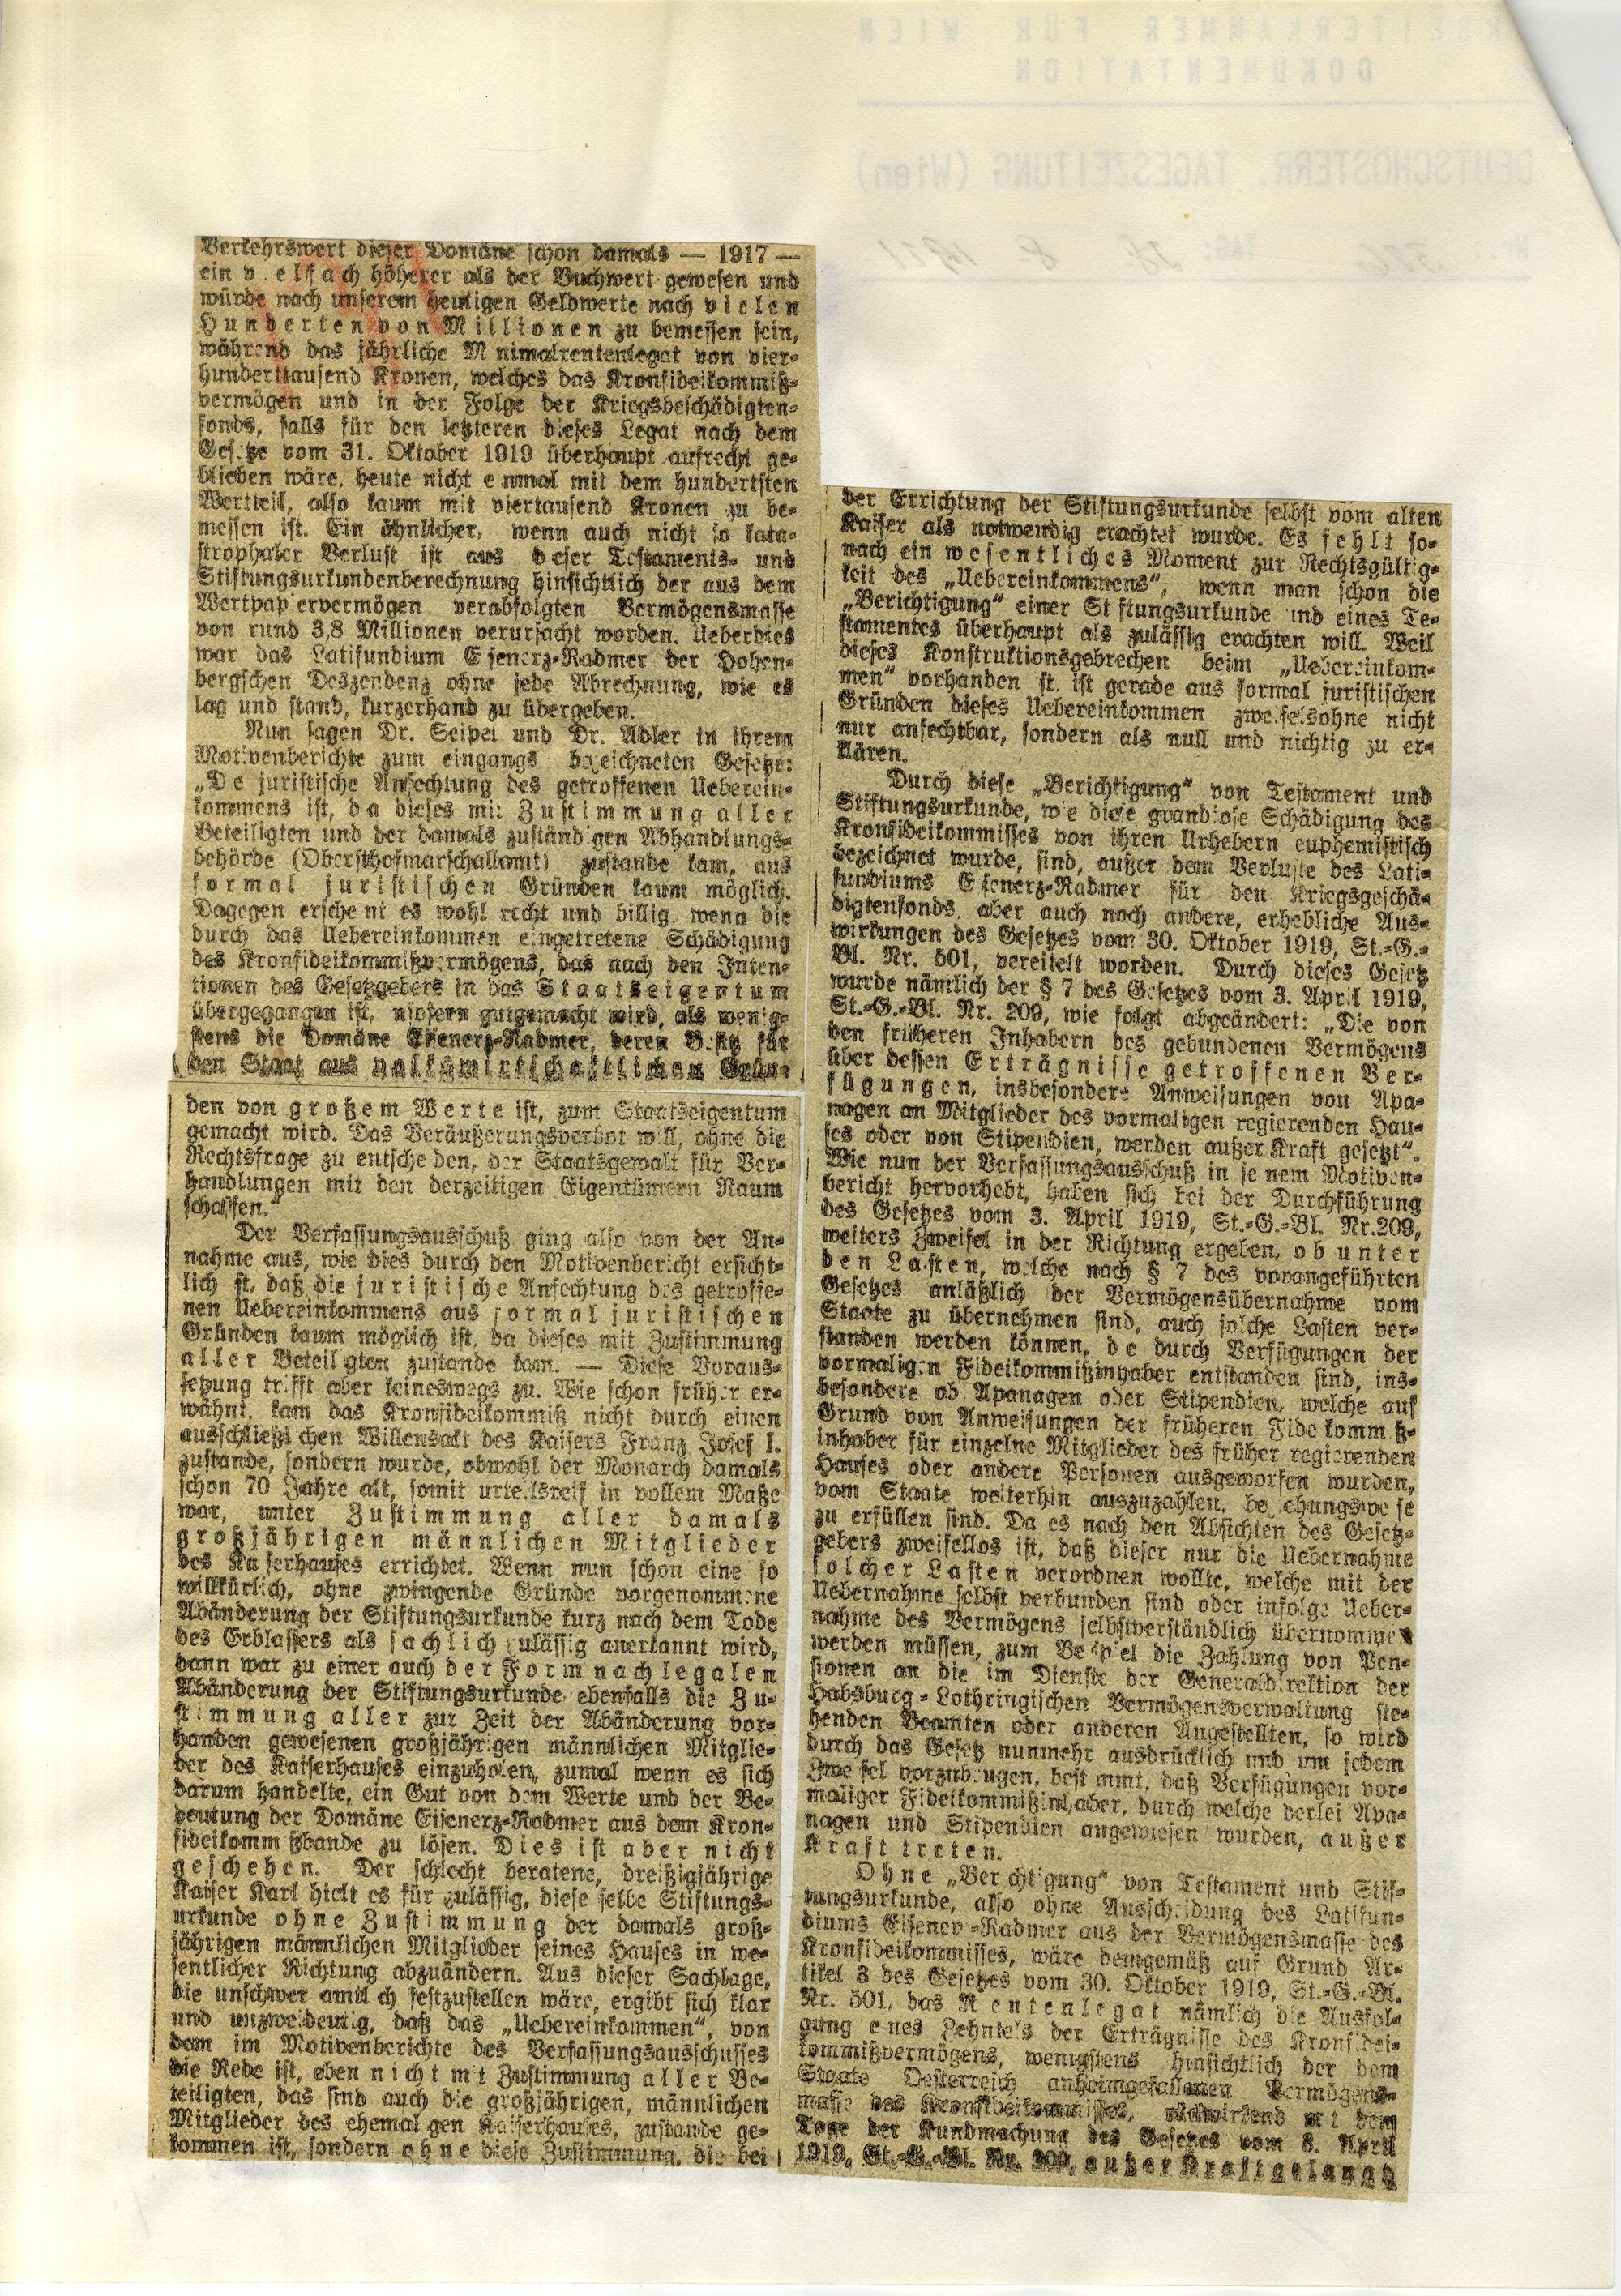 Verkehrswert dieser Domäne schon damals — 1917 —
ein v elfach höherer als der Buchwert gewesen und
würde nach unserem heutigen Geldwerte nach vielen
Hunderten von Millionen zu bemessen sein,
während das jährliche M nimalrentenlegat von vier-
hunderttausend Kronen, welches das Kronfideikommiß-
vermögen und in der Folge der Kriegsbeschädigten-
fonds, falls für den letzteren dieses Legat nach dem
Gesetze vom 31. Oktober 1919 überhaupt aufrecht ge-
blieben wäre, heute nicht e nmal mit dem hundertsten
Wertteil, also kaum mit viertausend Kronen zu be-
messen ist. Ein ähnlicher, wenn auch nicht so kata-
strophaler Verlust ist aus dieser Testaments- und
Stiftungsurkundenberechnung hinsichtlich der aus dem
Wertpap ervermögen verabfolgten Vermögensmasse
von rund 3,8 Millionen verursacht worden. Ueberdies
war das Latifundium E senerz-Radmer der Hohen-
bergschen Deszendenz ohne jede Abrechnung, wie es
lag und stand, kurzerhand zu übergeben.
Nun sagen Dr. Seipel und Dr. Adler in ihrem
Motivenberichte zum eingangs bezeichneten Gesetze:
„De juristische Anfechtung des getroffenen Ueberein-
kommens ist, da dieses mit Zustimmung aller
Beteiligten und der damals zuständigen Abhandlungs-
behörde (Obersthofmarschallamt) zustande kam, aus
formal juristischen Gründen kaum möglich.
Dagegen ersche nt es wohl recht und billig, wenn die
durch das Uebereinkommen eingetretene Schädigung
des Kronfideikommißvermögens, das nach den Inten-
tionen des Gesetzgebers in das Staatseigentum
übergegangen ist, nsofern gutgemacht wird, als wenig-
stens die Domäne Eisenerz-Radmer, deren Besitz für
den Staat aus volkswirtschaftlichen Grün-
den von großem Werte ist, zum Staatseigentum
gemacht wird. Das Veräußerungsverbot will, ohne die
Rechtsfrage zu entsche den, der Staatsgewalt für Ver-
handlungen mit den derzeitigen Eigentümern Raum
schaffen.“
Der Verfassungsausschuß ging also von der An-
nahme aus, wie dies durch den Motivenbericht ersicht-
lich st, daß die juristische Anfechtung des getroffe-
nen Uebereinkommens aus formal juristischen
Gründen kaum möglich ist, da dieses mit Zustimmung
aller Beteil gten zustande kam. — Diese Voraus-
setzung trifft aber keineswegs zu. Wie schon früher er-
wähnt, kam das Kronfideikommiß nicht durch einen
ausschließl chen Willensakt des Kaisers Franz Josef I.
zustande, sondern wurde, obwohl der Monarch damals
schon 70 Jahre alt, somit urteilsreif in vollem Maße
war, unter Zustimmung aller damals
großjährigen männlichen Mitglieder
des Ka serhauses errichtet. Wenn nun schon eine so
willkürlich, ohne zwingende Gründe vorgenommene
Abänderung der Stiftungsurkunde kurz nach dem Tode
des Erblassers als sachlich zulässig anerkannt wird,
dann war zu einer auch der Form nach legalen
Abänderung der Stiftungsurkunde ebenfalls die Zu-
stimmung aller zur Zeit der Abänderung vor-
handen gewesenen großjährigen männlichen Mitglie-
der des Kaiserhauses einzuholen, zumal wenn es sich
darum handelte, ein Gut von dem Werte und der Be-
deutung der Domäne Eisenerz-Radmer aus dem Kron-
fideikomm ßbande zu lösen. Dies ist aber nicht
geschehen. Der schlecht beratene, dreißigjährige
Kaiser Karl hielt es für zulässig, diese selbe Stiftungs-
urkunde ohne Zustimmung der damals groß-
jährigen männlichen Mitglieder seines Hauses in we-
sentlicher Richtung abzuändern. Aus dieser Sachlage,
die unschwer amtl ch festzustellen wäre, ergibt sich klar
und unzweideutig, daß das „Uebereinkommen“, von
dem im Motivenberichte des Verfassungsausschusses
die Rede ist, eben nicht mit Zustimmung aller Be-
teiligten, das sind auch die großjährigen, männlichen
Mitglieder des ehemal gen Kaiserhauses, zustande ge-
kommen ist, sondern ohne diese Zustimmung, die bei
der Errichtung der Stiftungsurkunde selbst vom alten
Kaiser als notwendig erachtet wurde. Es fehlt so-
nach ein wesentliches Moment zur Rechtsgültig-
keit des „Uebereinkommens“, wenn man schon die
„Berichtigung“ einer St ftungsurkunde und eines Te-
stamentes überhaupt als zulässig erachten will. Weil
dieses Konstruktionsgebrechen beim „Uebereinkom-
men“ vorhanden st, ist gerade aus formal juristischen
Gründen dieses Uebereinkommen zweifelsohne nicht
nur anfechtbar, sondern als null und nichtig zu er-
klären.
Durch diese „Berichtigung“ von Testament und
Stiftungsurkunde, wie diese grandiose Schädigung des
Kronfideikommisses von ihren Urhebern euphemistisch
bezeichnet wurde, sind, außer dem Verluste des Lati-
fundiums E senerz-Radmer für den Kriegsgeschä-
digtenfonds, aber auch noch andere, erhebliche Aus-
wirkungen des Gesetzes vom 30. Oktober 1919, St.-G.-
Bl. Nr. 501, vereitelt worden. Durch dieses Gesetz
wurde nämlich der § 7 des Gesetzes vom 3. April 1919,
St.-G.-Bl. Nr. 209, wie folgt abgeändert: „Die von
den früheren Inhabern des gebundenen Vermögens
über dessen Erträgnisse getroffenen Ver-
fügungen, insbesondere Anweisungen von Apa-
nagen an Mitglieder des vormaligen regierenden Hau-
ses oder von Stipendien, werden außer Kraft gesetzt“.
Wie nun der Verfassungsausschuß in se nem Motiven-
bericht hervorhebt, haben sich bei der Durchführung
des Gesetzes vom 3. April 1919, St.-G.-Bl. Nr. 209,
weiters Zweifel in der Richtung ergeben, ob unter
den Lasten, welche nach § 7 des vorangeführten
Gesetzes anläßlich der Vermögensübernahme vom
Staate zu übernehmen sind, auch solche Lasten ver-
standen werden können, d e durch Verfügungen der
vormaligen Fideikommißinhaber entstanden sind, ins-
besondere ob Apanagen oder Stipendien, welche auf
Grund von Anweisungen der früheren Fide komm ß-
inhaber für einzelne Mitglieder des früher regierenden
Hauses oder andere Personen ausgeworfen wurden,
vom Staate weiterhin auszuzahlen, be ehungswe se
zu erfüllen sind. Da es nach den Absichten des Gesetz-
gebers zweifellos ist, daß dieser nur die Uebernahme
solcher Lasten verordnen wollte, welche mit der
Uebernahme selbst verbunden sind oder infolge Ueber-
nahme des Vermögens selbstverständlich übernommen
werden müssen, zum Beispiel die Zahlung von Pen-
sionen an die im Dienste der Generaldirektion der
Habsburg-Lothringischen Vermögensverwaltung ste-
henden Beamten oder anderen Angestellten, so wird
durch das Gesetz nunmehr ausdrücklich und um jedem
Zwe fel vorzubeugen, best mmt, daß Verfügungen vor-
maliger Fideikommißinhaber, durch welche derlei Apa-
nagen und Stipendien angewiesen wurden, außer
Kraft treten.
Ohne „Ber chtigung“ von Testament und Stif-
tungsurkunde, also ohne Ausscheidung des Latifun-
diums Eisenerz-Radmer aus der Vermögensmasse des
Kronfideikommisses, wäre demgemäß auf Grund Ar-
tikel 3 des Gesetzes vom 30. Oktober 1919, St.-G.-Bl.
Nr. 501, das Rentenlegat nämlich die Ausfol-
gung e nes Zehntels der Erträgnisse des Kronfidei-
kommißvermögens, wenigstens hinsichtlich der dem
Staate Oesterreich anheimgefallenen Vermögens-
masse des Kronfideikommisses, rückwirkend m t dem
Tage der Kundmachung des Gesetzes vom 3. April
1919, St.-G.-Bl. Nr. 209, außer Kraft gelangt